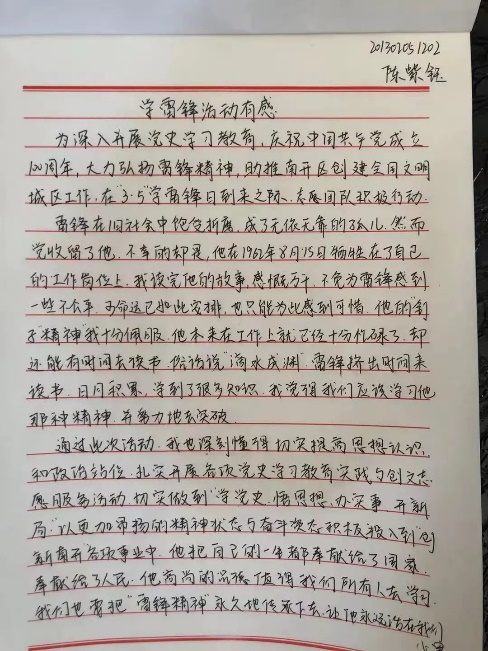 201302051202
陈紫钰
学雷锋活动有感
为深入开展党史学习教育，庆祝中国共产党成立
100周年，大力弘扬雷锋精神，助推南开区创建全国文明
城区工作，在“3·5”学雷锋日到来之际、志愿团队积极行动.
雷锋在旧社会中饱受折磨，成了无依无靠的孤儿.然而
党收留了他，不幸的却是，他在1962年8月15日牺牲在了自己
的工作岗位上.我读完他的故事感慨万千.不免为雷锋感到
一些不公平.可命运已如此安排，也只能为此感到可惜.他的“钉
子”精神”我十分佩服.他本来在工作上就已经十分忙碌了.却
还能有时间去读书.俗话说“滴水成渊”雷锋挤出时间来
读书.日月积累，学到了很多知识.我觉得我们应该学习他
那种精神.并努力地去突破.
通过此次活动.我也深刻懂得切实提高思想认识，
和政治站位.扎实开展各项党史学习教育实践与创文志
愿服务活动.切实做到“学党史、悟思想、办实事、开新
局”以更加昂扬的精神状态与奋斗姿态积极投入到“创
新南开”各项事业中.他把自己的一生都奉献给了国家.
奉献给了人民.他高尚的品德值得我们所有人去学习.
我们也要把“雷锋精神”永久地传承下去.让他永远活在我们